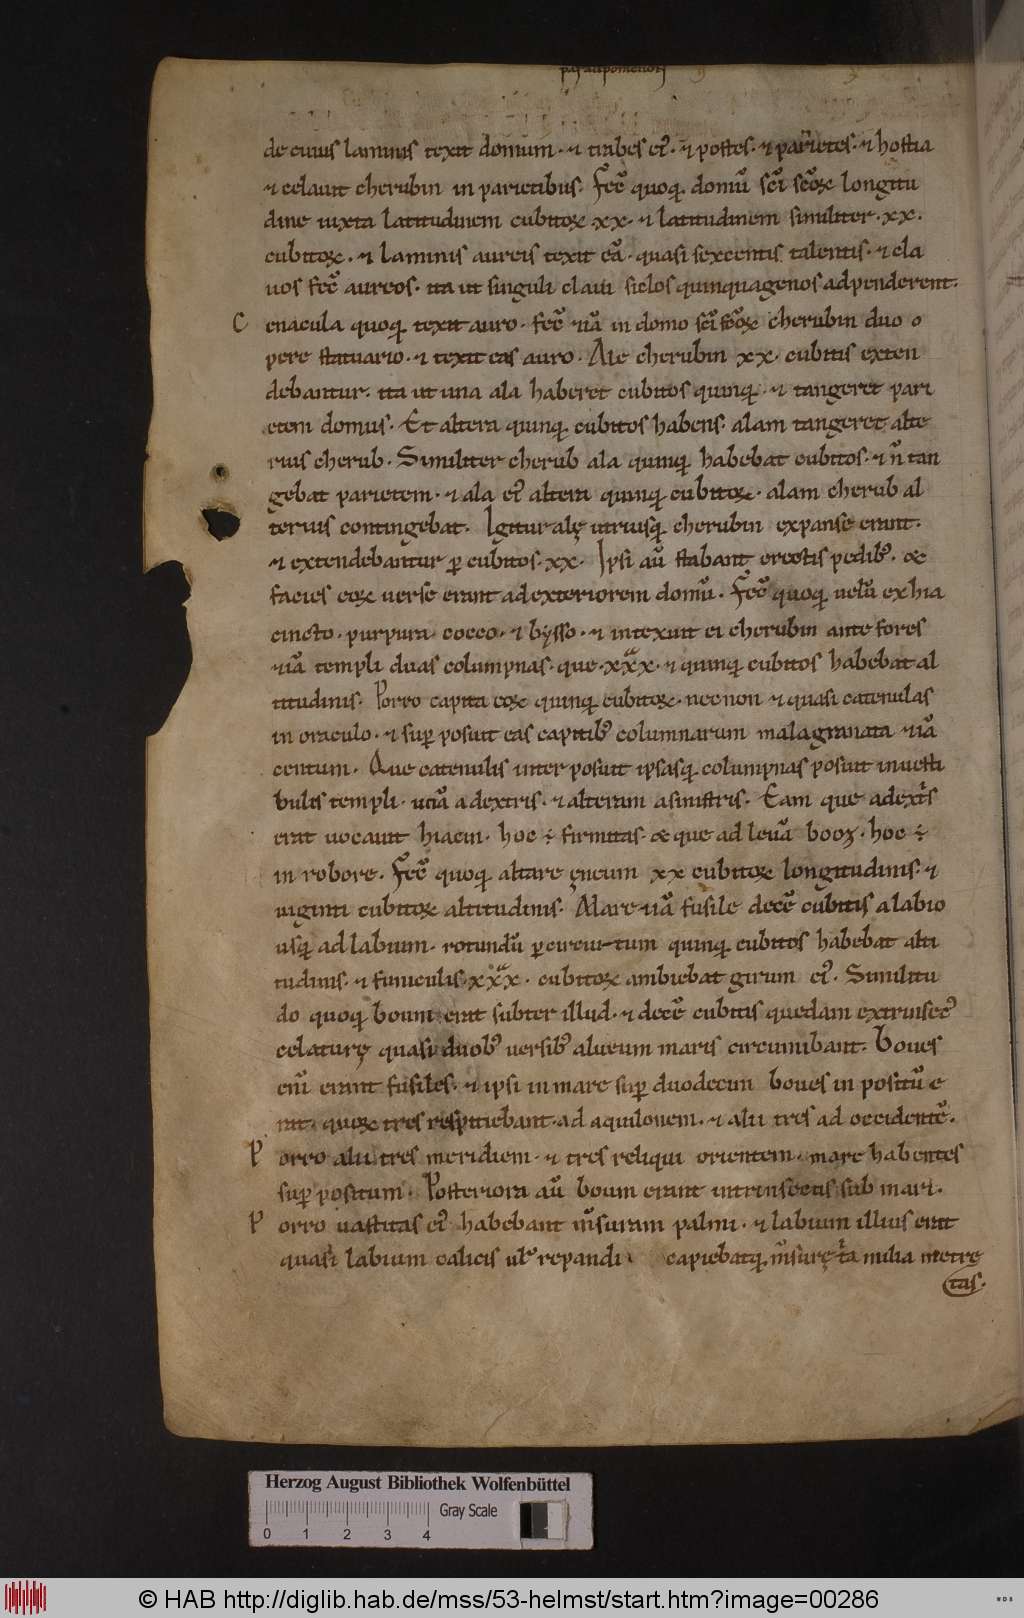 de cuius laminis texit domum· ⁊ trabes eiꝰ· ⁊ postes· ⁊ parietes· ⁊ hostia
⁊ celauit cherubin in parietibus· Fec̄ quoq; domū sc̄i sc̄oꝝ longitu
dine iuxta latitudinem cubitoꝝ ·xx· ⁊ latitudinem similiter ·xx·
cubitoꝝ· ⁊ laminis aureis texit eā· quasi sexcentis talentis· ⁊ cla
uos fec̄ aureos· ita ut singuli claui siclos quinquagenos adpenderent·
C enacula quoq; texit auro· fec̄ ⁊iā in domo sc̄i sc̄oꝝ cherubin duo o
pere statuario· ⁊ texit eas auro· Ale cherubin xx· cubitis exten
debantur· ita ut una ala haberet cubitos quinq;· ⁊ tangeret pari
etem domus· Et altera quinq; cubitos habens· alam tangeret alte
rius cherub· Similiter cherub ala quinq; habebat cubitos· ⁊ ñ tan
gebat parietem· ⁊ ala eiꝰ altera quinq; cubitoꝝ· alam cherub al
terius contingebat· Igitur alę utriusq; cherubin expanse erant·
⁊ extendebantur ꝑ cubitos ·xx· Ipsi aū stabant erectis pedibꝰ· &
facies eoꝝ uerse erant ad exteriorem domū· Fec̄ quoq; uelū ex hia
cincto· purpura· cocco· ⁊ bysso· ⁊ intexuit ei cherubin ante fores
⁊iā templi duas columpnas· que ·xxx· ⁊ quinq; cubitos habebat al
titudinis· Porro capita eoꝝ quinq; cubitoꝝ· necnon ⁊ quasi catenulas
in oraculo· ⁊ suꝑ posuit eas capitibꝰ columnarum malagranata ⁊iā
centum· Que catenulis inter posuit ipsasq; columpnas posuit in uesti
bulis templi· unā a dextris· ⁊ alteram a sinistris· Eam que a dext̄s
erat uocauit hiacin· hoc ÷ firmitas· & que ad leuā booz· hoc ÷
in robore· Fec̄ quoq; altare ęneum xx cubitoꝝ longitudinis· ⁊
uiginti cubitoꝝ altitudinis· Mare ⁊iā fusile decē cubitis a labio
usq; ad labium· rotundū ꝑ circuitum quinq; cubitos habebat alti
tudinis· ⁊ funiculis ·xxx· cubitoꝝ ambiebat girum eiꝰ· Similitu
do quoq; boum erat subter illud· ⁊ decē cubitis quedam extrinsecꝰ
celaturę quasi duobꝰ uersibꝰ alueum maris circumibant· Boues
eni erant fusiles· ⁊ ipsi in mare suꝑ duodecim boues in positū e
rat· quoꝝ tres respitiebant ad aquilonem· ⁊ alii tres ad occidentē·
P orro alii tres meridiem· ⁊ tres reliqui orientem· mare habentes
suꝑ positum· Posteriora aū boum erant intrinsecus sub mari·
P orro uastitas eiꝰ habebant m̄suram palmi· ⁊ labium illius erat
quasi labium calicis ul̄ repandi capiebatq; m̄surę t̄a milia metre
tas·
Herzog August Bibliothek Wolfenbüttel
Gray Scale
0 1 2 3 4
© HAB http://diglib.hab.de/mss/53-helmst/start.htm?image=00286